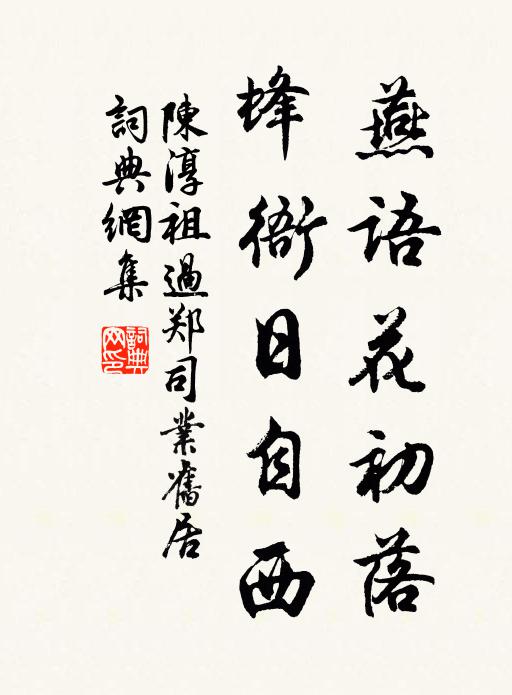 燕語花初落
蜂衙日自西
陳淳祖過郑司業舊居
詞典網集
詞典网印